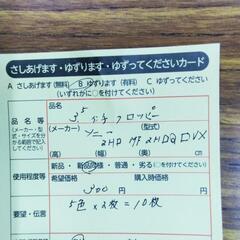 さしあげます・ゆずります・ゆってくださいカード
A さしあげます(無料) B ゆずります(有料) C ゆずってください
(いずれかに○を付けてください)
品名等
(メーカー・型式・サイズを分かる範囲で記入してください)
品名
3.5 インチ フロッピー
(メーカー) (型式)
ソニー 2HD MF2HDQDVX
(高) (幅)
使用程度等
新品・新品同様・普通・劣る(○を付けて
希望価格 購入時価格
300円
要望・伝言
5色×2枚=10枚